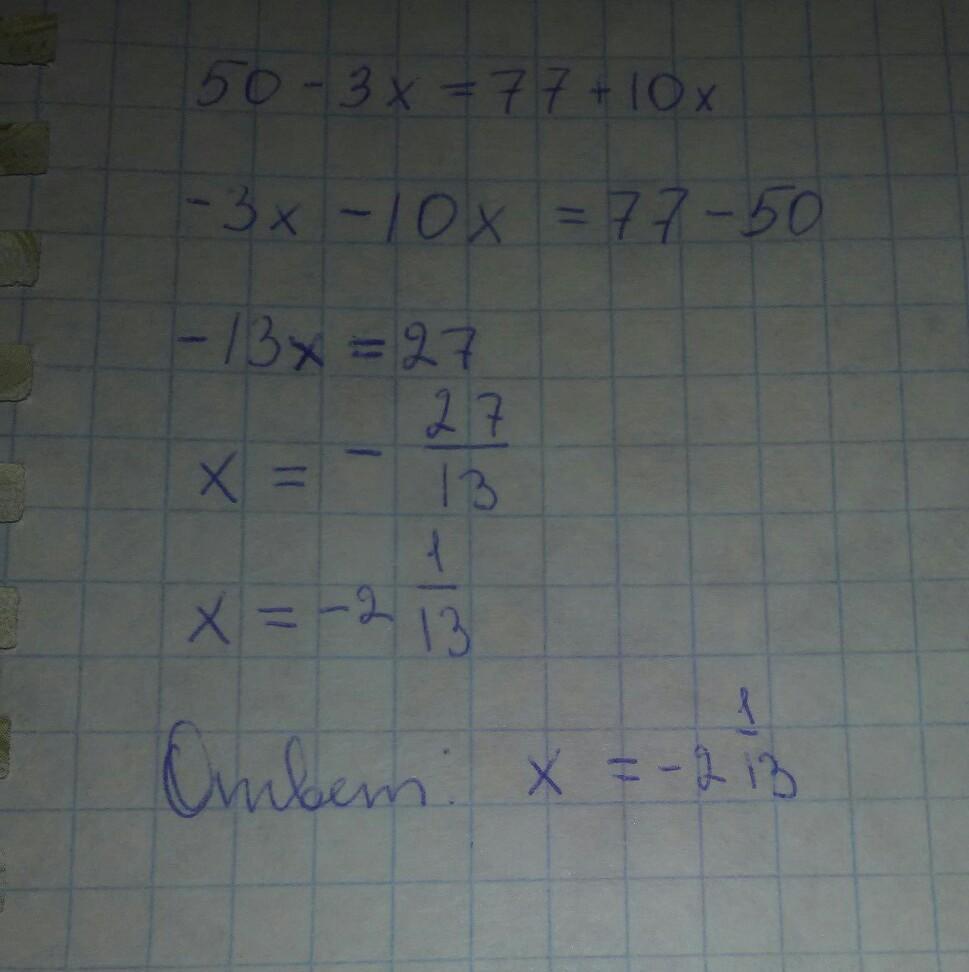 50 - 3x = 77 + 10x
-3x - 10x = 77 - 50
-13x = 27
x = - 27/13
x = -2 1/13
Ответ: x = -2 1/13